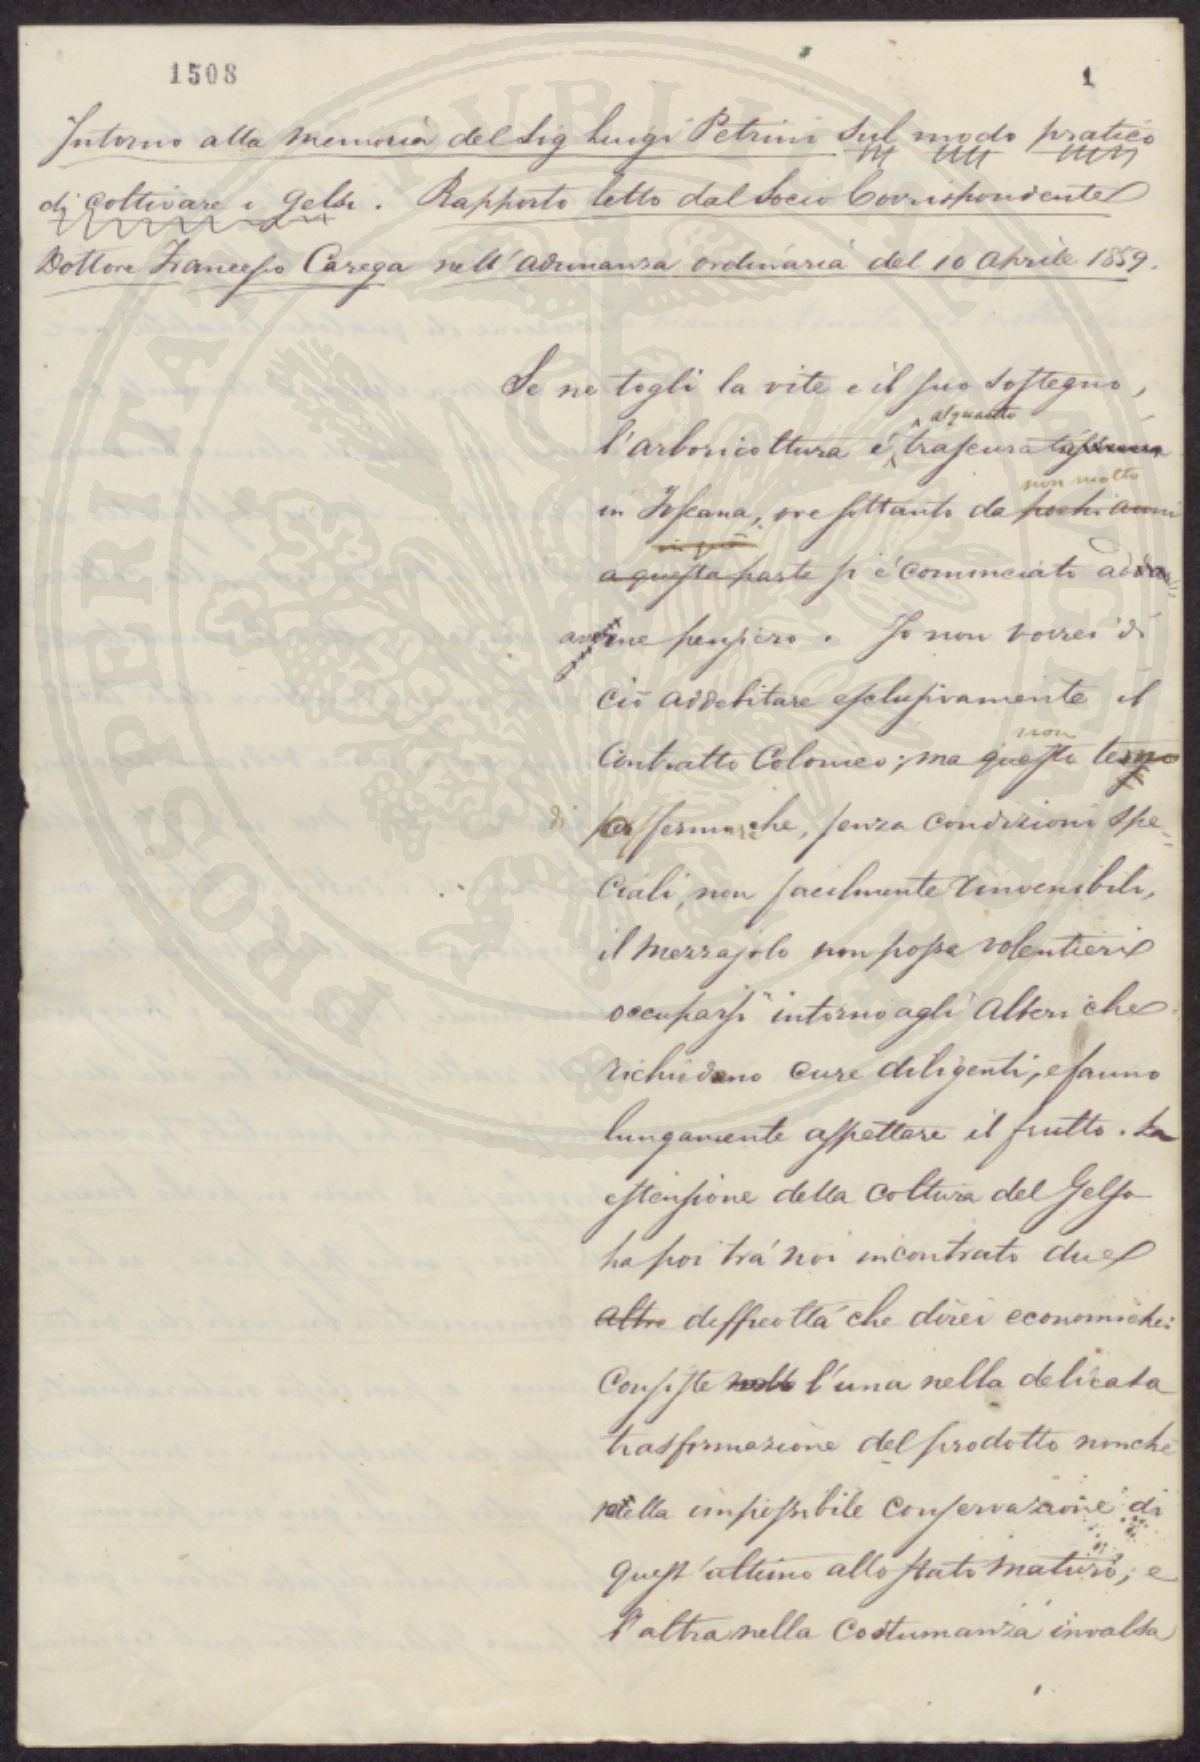 1508
1
Intorno alla memoria del Sig Luigi Petrini sul modo pratico
di coltivare i gelsi. Rapporto letto dal Socio Corrispondente
Dottore Francesco Carega nell'adunanza ordinaria del 10 Aprile 1859.
Se ne togli la vite e il suo sostegno,
alquanto
l'arboricoltura è trascurata
non molto
in Toscana, ove soltanto da pochi anni
in quà
a questa parte si è cominciato ad
avere pensiero. Io non vorrei di
ciò addebitare esclusivamente il
non
Contratto Colonico; ma questo temo
di per fermo che, senza condizioni spe=
ciali, non facilmente rinvenibili,
il Mezzajolo non possa volentieri
occuparsi intorno agli alberi che
richiedono cure diligenti, e fanno
lungamente aspettare il frutto. La
estensione della coltura del Gelso
ha poi trà noi incontrato due
altre difficoltà che direi economiche:
Consiste l'una nella delicata
trasformazione del prodotto nonchè
nella impossibile conservazione di
quest'ultimo allo stato maturo; e
l'altra nella costumanza invalsa
PROSPERITATI PUBLICAE AUGENDAE